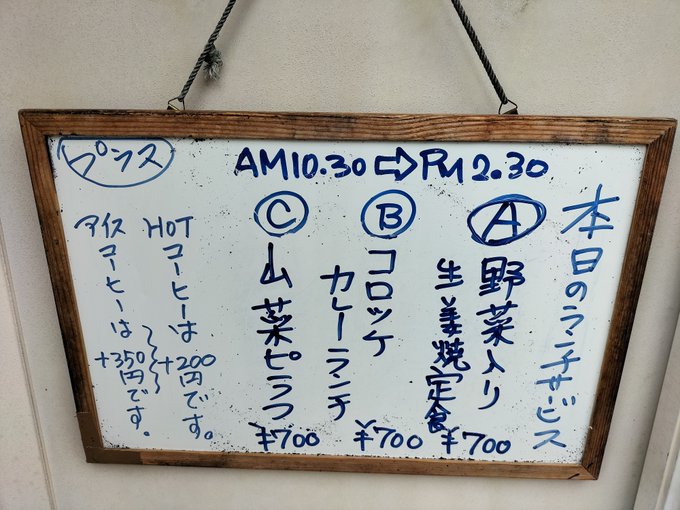 本日のランチサービス
AM10.30⇨PM2.30
Ⓐ
野菜入り
生姜焼定食
¥700
Ⓑ
コロッケ
カレーランチ
¥700
Ⓒ
山菜ピラフ
¥700
プラス
HOT
コーヒーは
+200
円です。
アイス
コーヒーは
+350
円です.